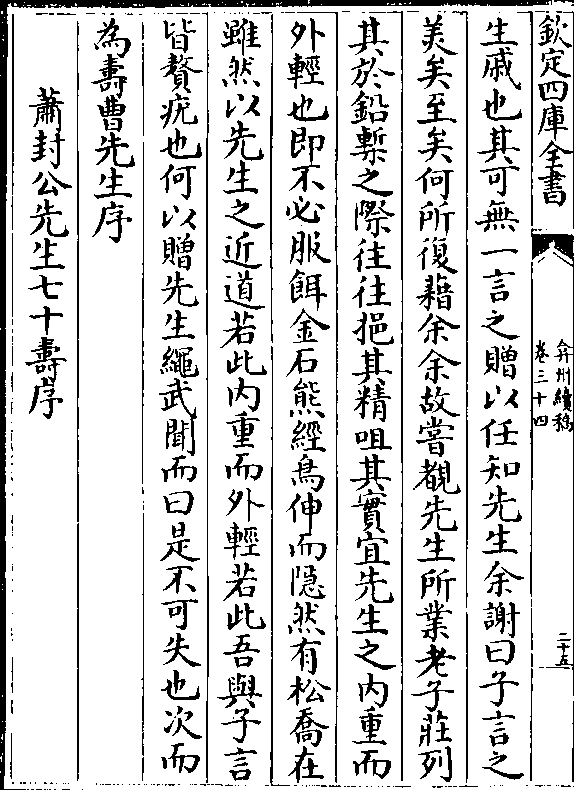 欽定四庫全書
弇州續稿
卷三十四
二十五
生戚也其可無一言之贈以任知先生余謝曰子言之
美矣至矣何所復藉余余故嘗覩先生所業老子莊列
其於鉛槧之際往往挹其精咀其實宜先生之内重而
外輕也即不必服餌金石熊經鳥伸而隠然有松喬在
雖然以先生之近道若此内重而外輕若此吾與子言
皆贅疣也何以贈先生繩武聞而曰是不可失也次而
為壽曹先生序
蕭封公先生七十壽序